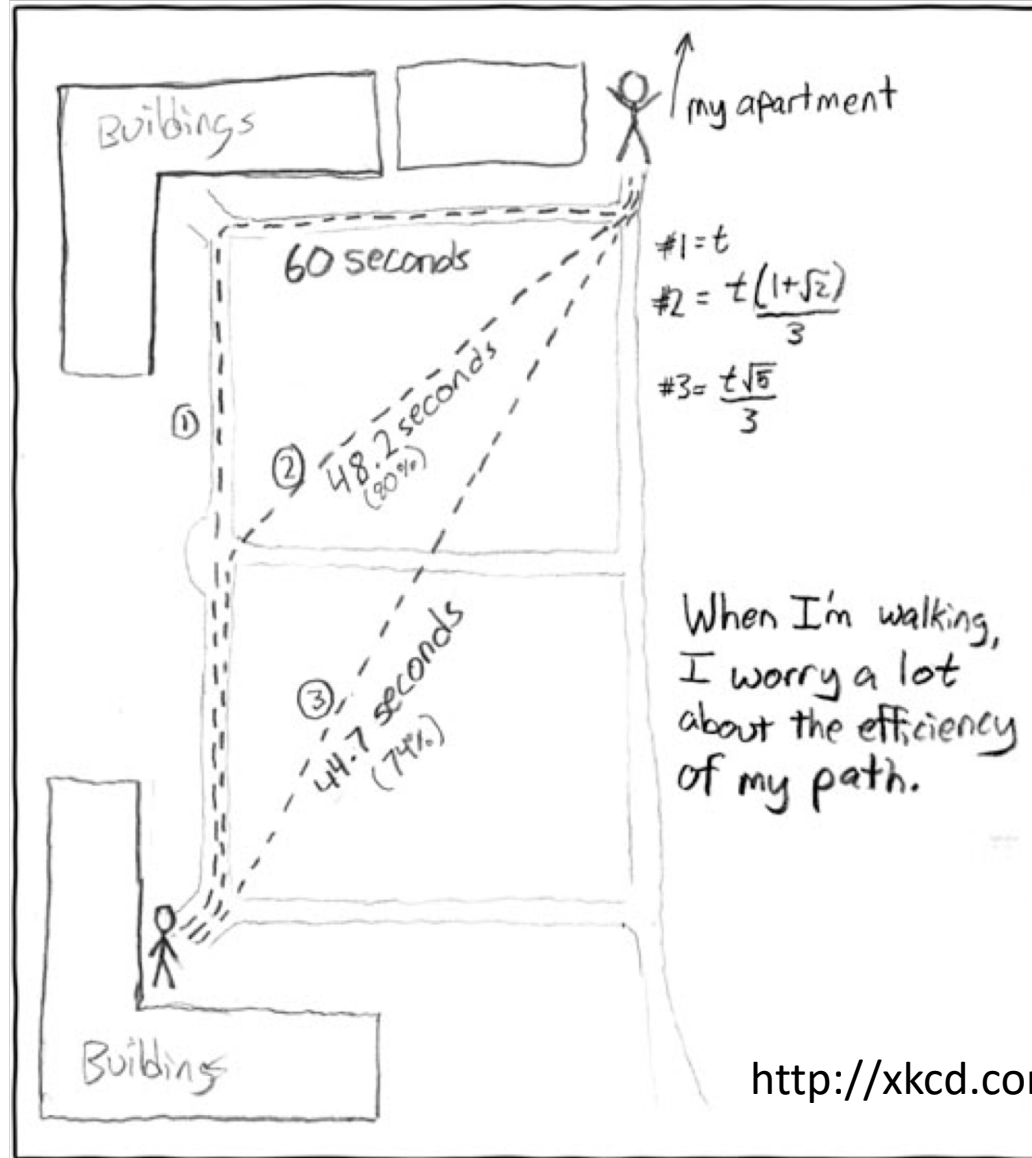 Buildings
my apartment
60 seconds
#1 = t
#2 = t(1+√2)
3
#3 = t√5
3
①
②
48.2 seconds
(80%)
③
44.7 seconds
(74%)
When I'm walking,
I worry a lot
about the efficiency
of my path.
Buildings
http://xkcd.com